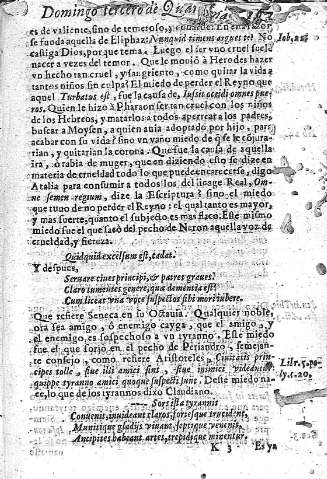 Domingo tercero de
es de valiente, sino de temeroso, y cobarde. En esto
se funda aquella de Eliphaz, Nunquid timens arguet te? No
castiga Dios, porque tema. Luego el ser vno cruel suele
nacer a vezes del temor. Que le mouiò a Herodes hazer
vn hecho tan cruel, y sangriento, como quitar la vida a
tantos niños sin culpa? El miedo de perder el Reyno que
aquel Turbatus est, fue la causa de, Iussit occidi omnes pue
ros. Quien le hizo à Pharaon ser tan cruel con los niños
de los Hebreos, y matarlos a todos
buscar a Moysen, a quien auia adoptado por hijo, para
acabar con su vida? sino vn vano miedo de q̃ se le
rian, y quitarian la corona. Que fue la causa de aquella
ira, ò rabia de muger, que en diziendo esto se dize en
materia de crueldad todo lo que puede encarecerse, digo
Atalia para consumir a todos los del linage Real, Om-
ne semen regium, dize la Escriptura? sino el miedo
que tuuo de no perder el Reyno: el qual tanto es mayor,
y mas fuerte, quanto el subjecto es mas flaco. Este mismo
miedo fue el que sacò del pecho de Neron aquella voz de
crueldad, y fiereza.
Quidquid excelsum est, cadat.
Y despues,
Seruare ciues principi, & patres graues?
Claro tumentes genere, quæ dementia est?
Cum liceat vna voce suspectos sibi mori iubere.
Que refiere Seneca en su Octauia. Qualquier noble,
ora sea amigo, ò enemigo cayga, que el amigo, y
el enemigo, es sospechoso a vn tyranno. Este miedo
fue el que forjo en el pecho de Periandro, semejan-
te consejo, como refiere Aristoteles, Ciuitatis prin-
cipes tolle, siue illi amici sint, siue inimici videantur
quippe tyranno amici quoque suspecti sunt. Deste miedo na-
ce, lo que de los tyrannos dixo Claudiano.
---- Sors ista tyrannis
Conuenit, inuideant claros, fortesque trucident,
Munitique gladijs viuant, septique venenis,
Ancipites habeant artes, trepidique minentur.
K 3 Es ya
Job, 22.
Libr. 5. po-
ly. c. 20.